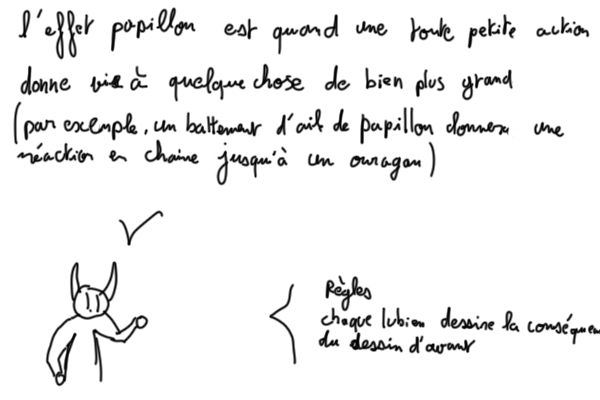 l'effet papillon est quand une toute petite action
donne vie à quelque chose de bien plus grand
(par exemple, un battement d'aile de papillon donnera une
réaction en chaine jusqu'à un ouragan)
Règles
chaque lubien dessine la conséquen
du dessin d'avant